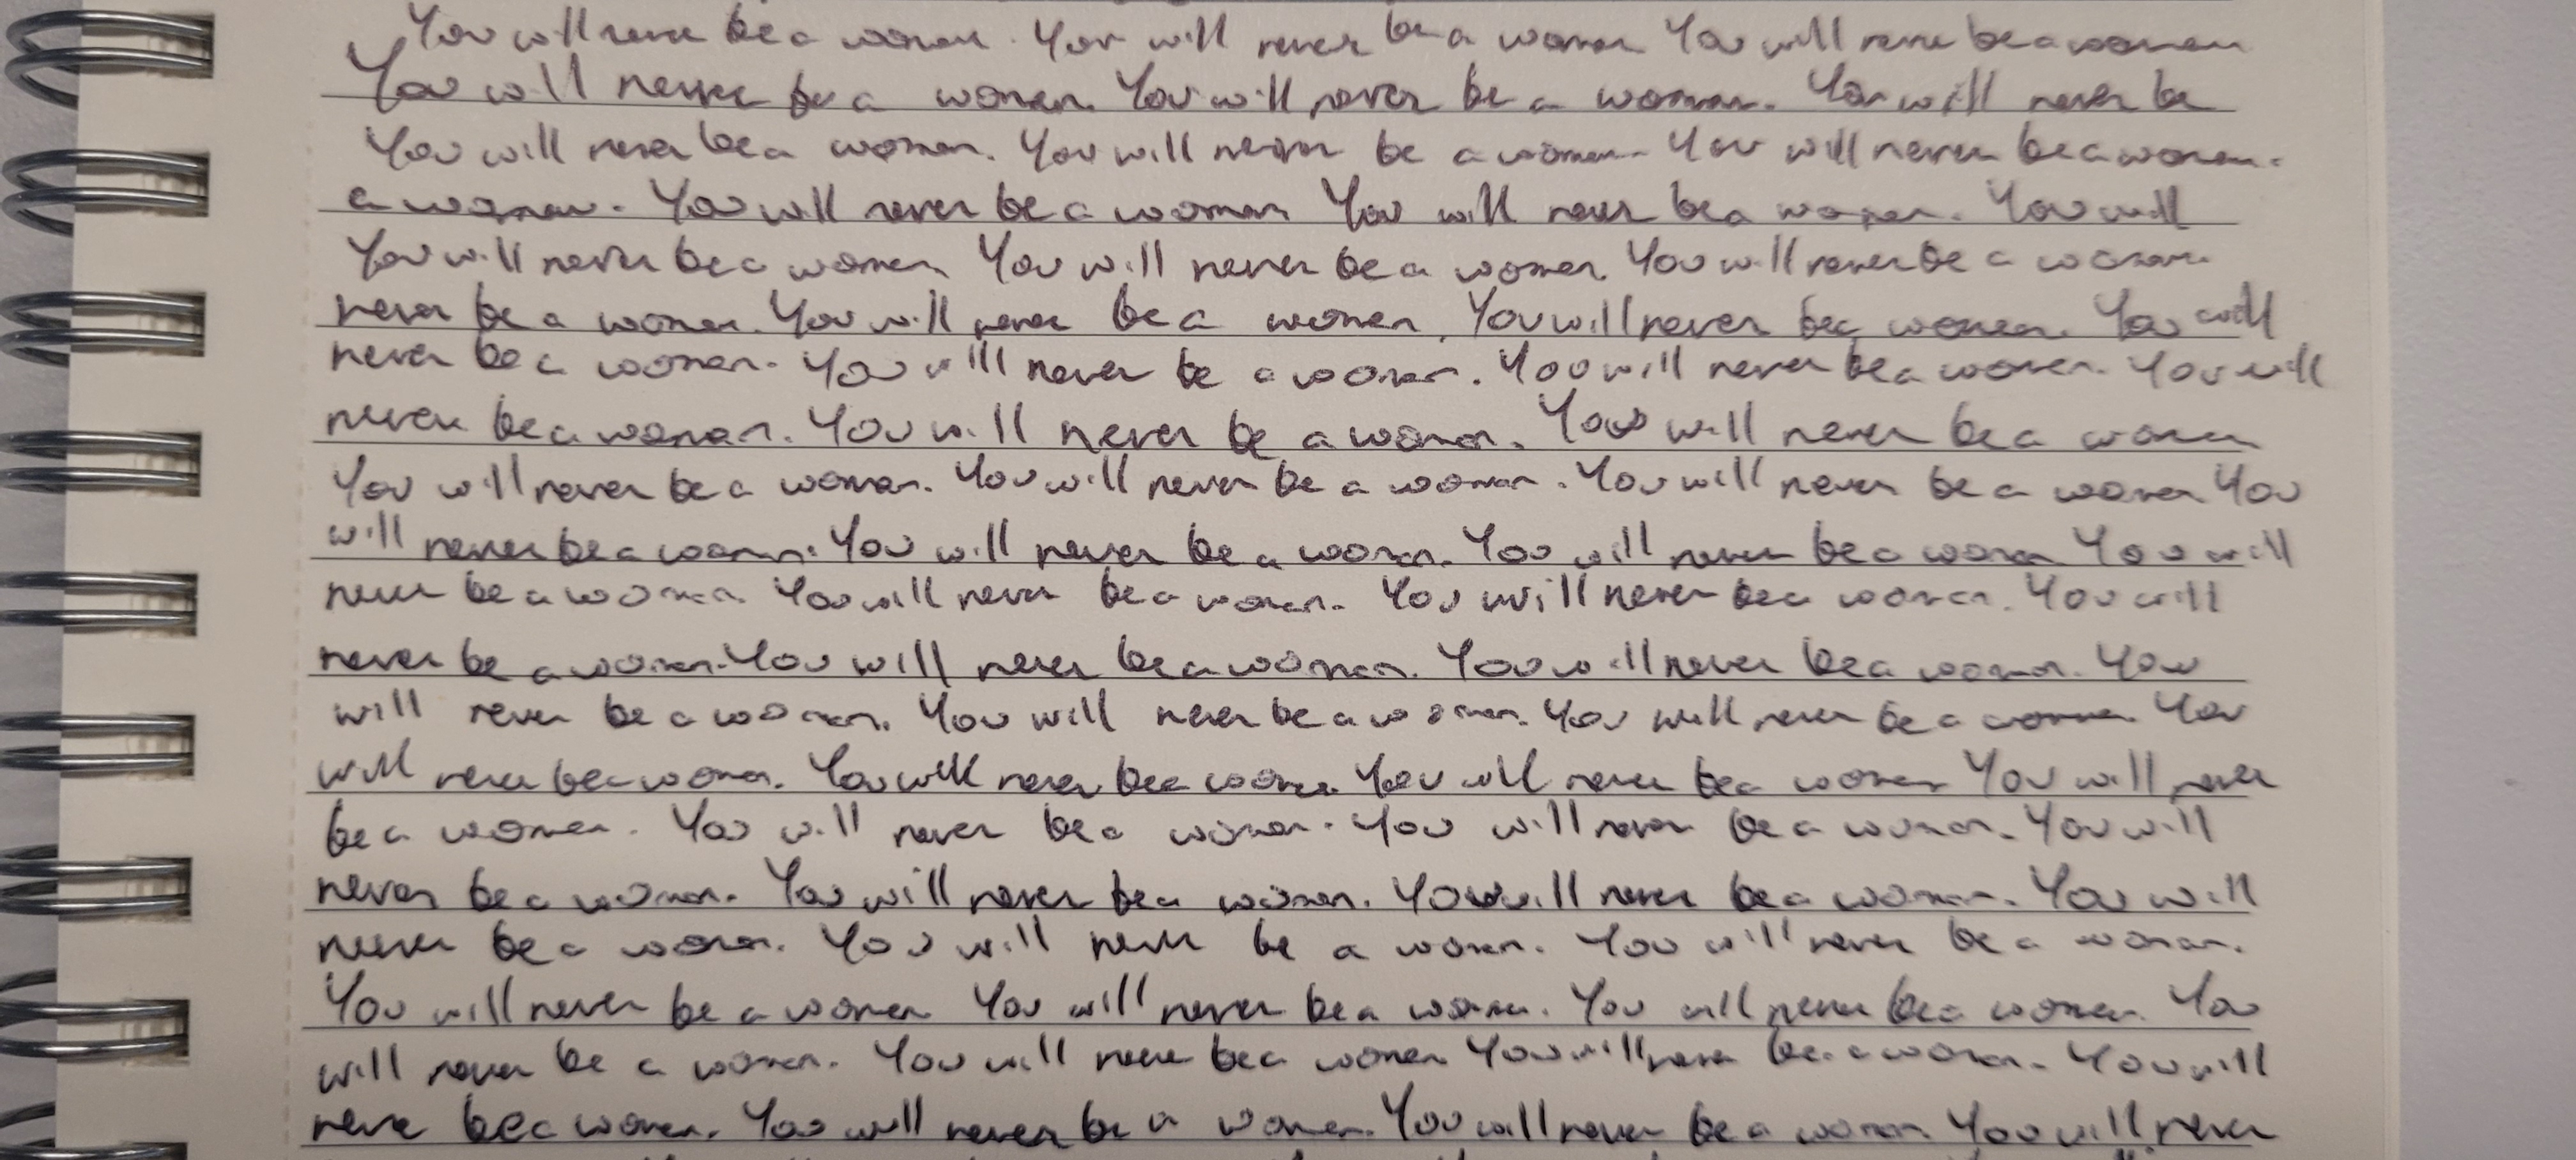 You will never be a woman. You will never be a woman You will never be a woman
You will never be a woman. You will never be a woman. You will never be
You will never be a woman. You will never be a woman. You will never be a woman.
a woman. You will never be a woman You will never be a woman. You will
You will never be a woman. You will never be a woman. You will never be a woman
never be a woman. You will never be a woman. You will never be a woman. You will
never be a woman. You will never be a woman. You will never be a woman. You will
never be a woman. You will never be a woman. You will never be a woman
You will never be a woman. You will never be a woman. You will never be a woman You
will never be a woman. You will never be a woman. You will never be a woman You will
never be a woman. You will never be a woman. You will never be a woman. You will
never be a woman. You will never be a woman. You will never be a woman. You
will never be a woman. You will never be a woman. You will never be a woman. You
will never be a woman. You will never be a woman. You will never be a woman You will never
be a woman. You will never be a woman. You will never be a woman. You will
never be a woman. You will never be a woman. You will never be a woman. You will
never be a woman. You will never be a woman. You will never be a woman.
You will never be a woman You will never be a woman. You will never be a woman. You
will never be a woman. You will never be a woman You will never be a woman. You will
never be a woman. You will never be a woman. You will never be a woman You will never